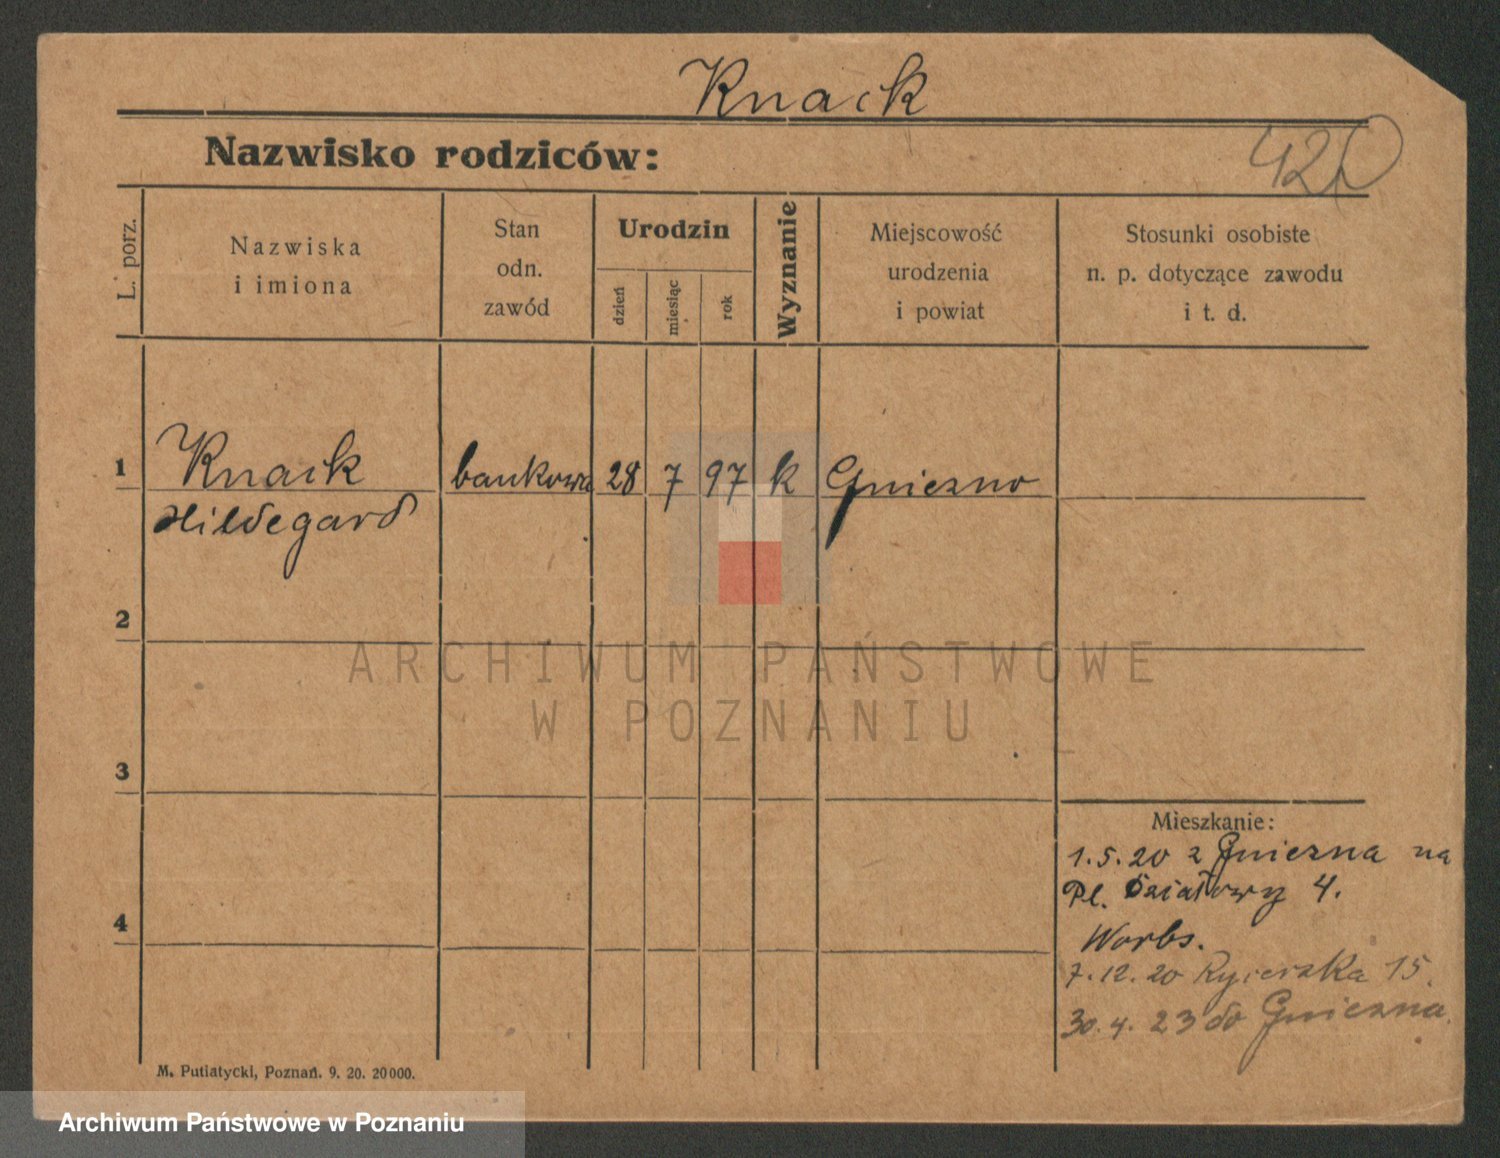 Knack
Nazwisko rodziców:
L. porz.
Nazwiska
i imiona
Stan
odn.
zawód
Urodzin
dzień
miesiąc
rok
Wyznanie
Miejscowość
urodzenia
i powiat
Stosunki osobiste
n. p. dotyczące zawodu
i t. d.
1
Knack
Hildegard
bankowa
28
7
97
k
Gniezno
2
3
4
Mieszkanie:
1.5.20 z Gniezna na
Pl. Działowy 4.
Worbs.
7.12.20 Rycerska 15.
30.4.23 do Gniezna.
M. Putiatycki, Poznań. 9. 20. 20000.
ARCHIWUM PAŃSTWOWE
W POZNANIU
Archiwum Państwowe w Poznaniu